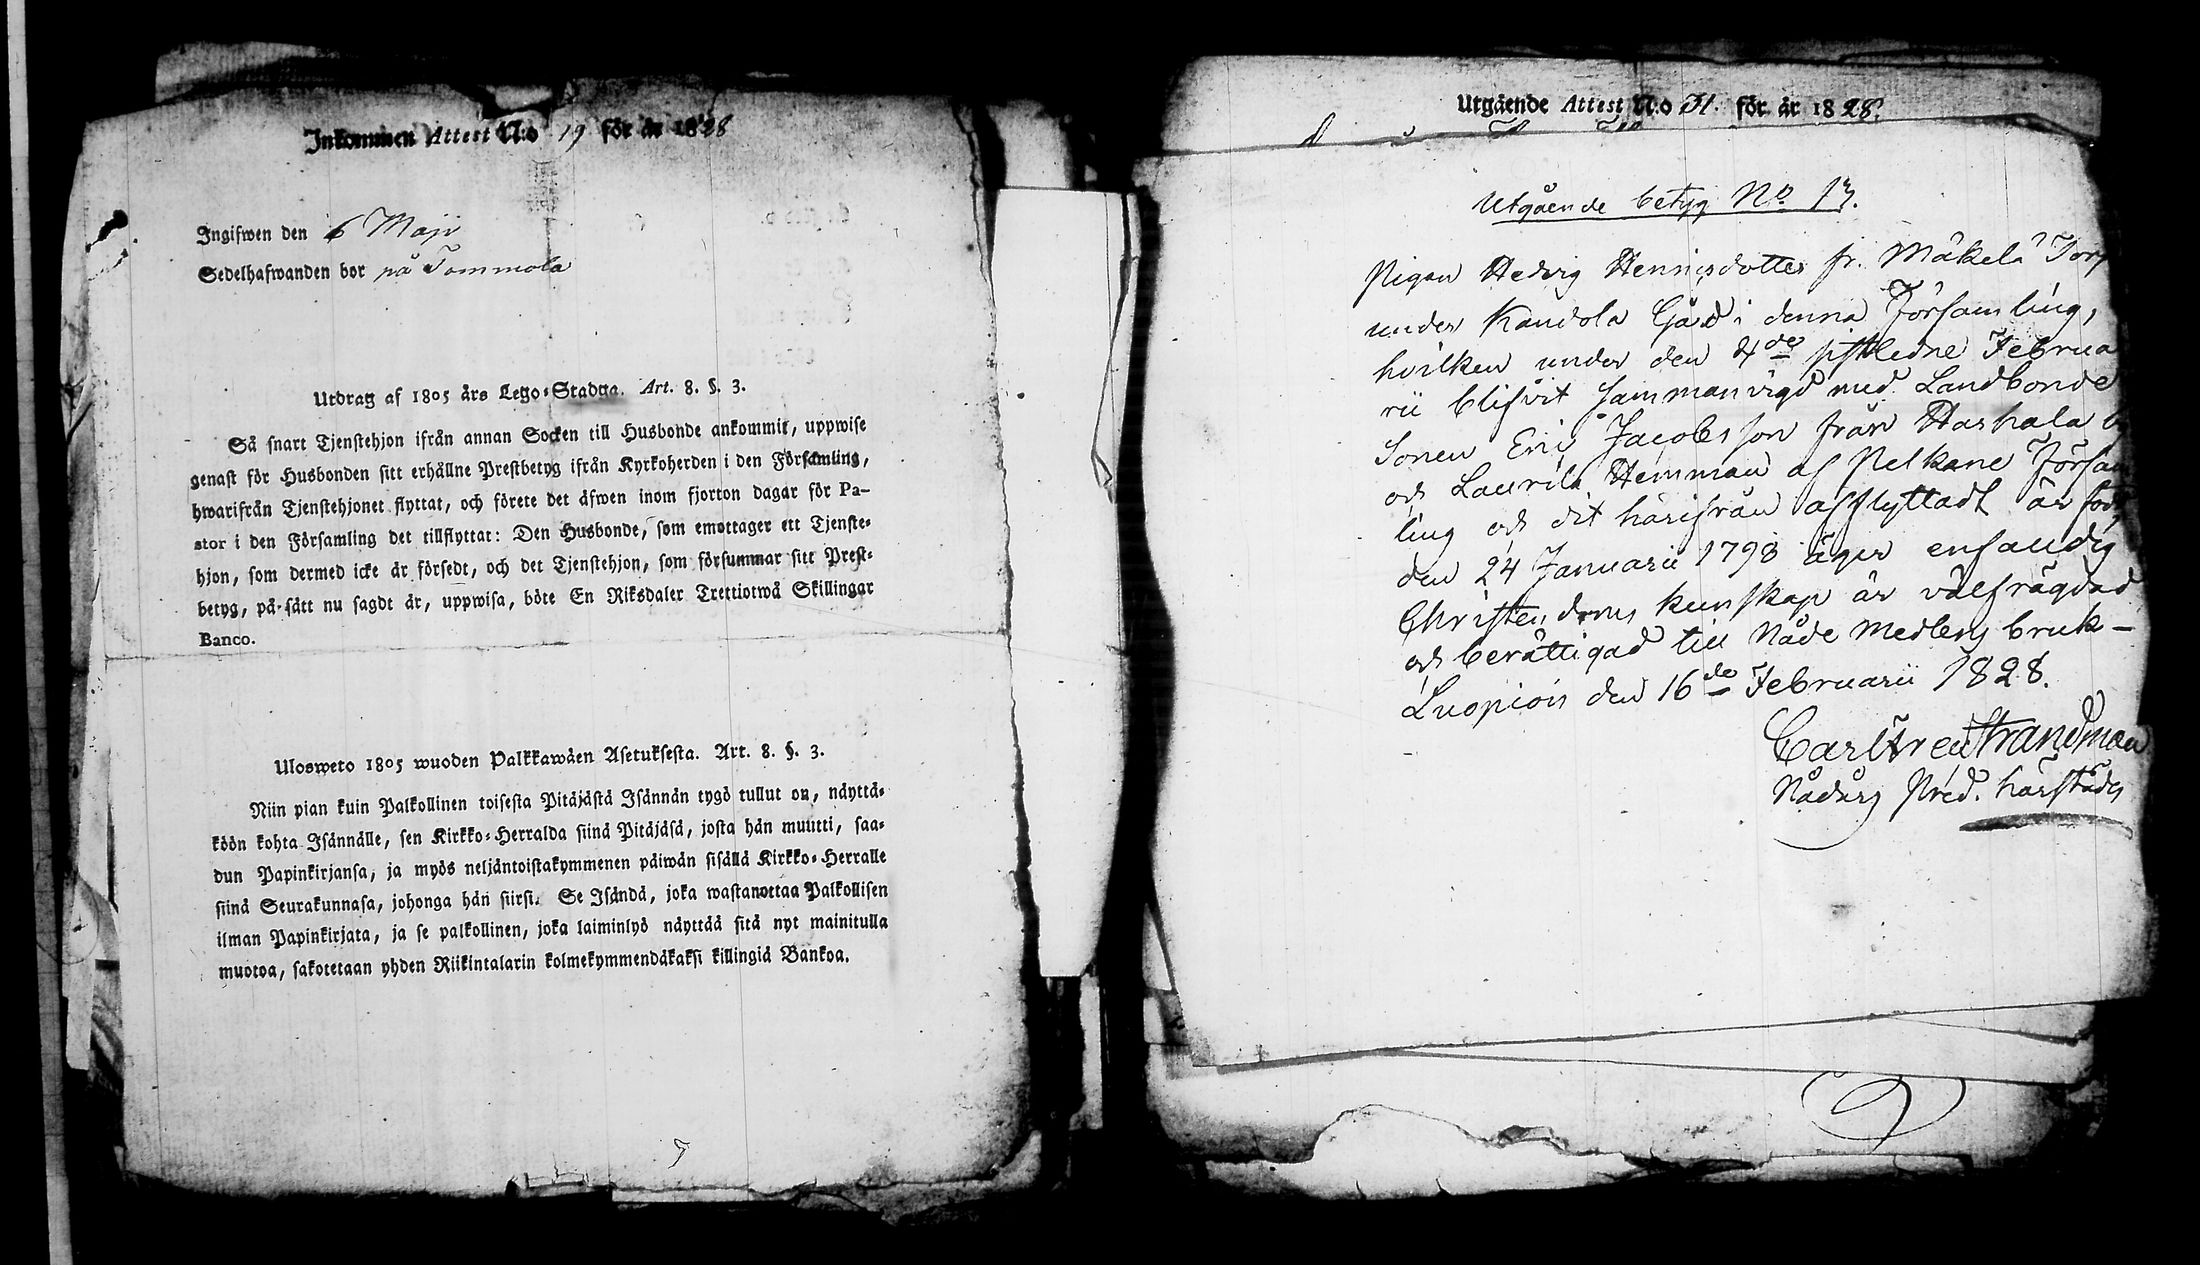 Inkommen Attest N:o 19 för år 1828
Ingifwen den 6 Maji
Sedelhafwanden bor på Tommola
Utdrag af 1805 års Lego-Stadga. Art. 8. §. 3.
Så snart Tjenstehjon ifrån annan Socken till Husbonde ankommit, uppwise
genast för Husbonden sitt erhållne Prestbetyg ifrån Kyrkoherden i den Församling,
hwarifrån Tjenstehjonet flyttat, och förete det äfwen inom fjorton dagar för Pa-
stor i den Församling det tillflyttat: Den Husbonde, som emottager ett Tjenste-
hjon, som dermed icke är försedt, och det Tjenstehjon, som försummar sitt Prest-
betyg, på-sätt nu sagdt är, uppwisa, böte En Riksdaler Trettiotwå Skillingar
Banco.
Ulosweto 1805 wuoden Palkkawäen Asetuksesta. Art. 8. §. 3.
Niin pian kuin Palkollinen toisesta Pitäjästä Isännän tygö tullut on, näyttä-
köön kohta Isännälle, sen Kirkko-Herralda siinä Pitäjäsä, josta hän muutti, saa-
dun Papinkirjansa, ja myös neljäntoistakymmenen päiwän sisällä Kirkko-Herralle
siinä Seurakunnasa, johonga hän siirsi. Se Isändä, joka wastanottaa Palkollisen
ilman Papinkirjata, ja se palkollinen, joka laiminlyö näyttää sitä nyt mainitulla
muotoa, sakotetaan yhden Riikintalarin kolmekymmendäkaksi killingiä Bankoa.
Utgående Attest N:o 31. för år 1828.
Utgående betyg No 13.
Pigan Hedvig Henricsdotter fr. Mäkelä Torp
under Kandola Gård i denna Församling,
hvilken under den 4de sistledne Februa
rii blifvit sammanvigd med Landbonde
Sonen Eric Jacobsson från Harhala
och Laurila Hemman af Pelkane Försam
ling och dit härifrån afflyttadt är född
den 24 Januarii 1798 äger enfaldig
Christendoms kunskap är välfrägdad
och berättigad till Nåde Medlens bruk –
Luopiois den 16de Februarii 1828.
Carl Strandman
Nådårs Pred. härstädes